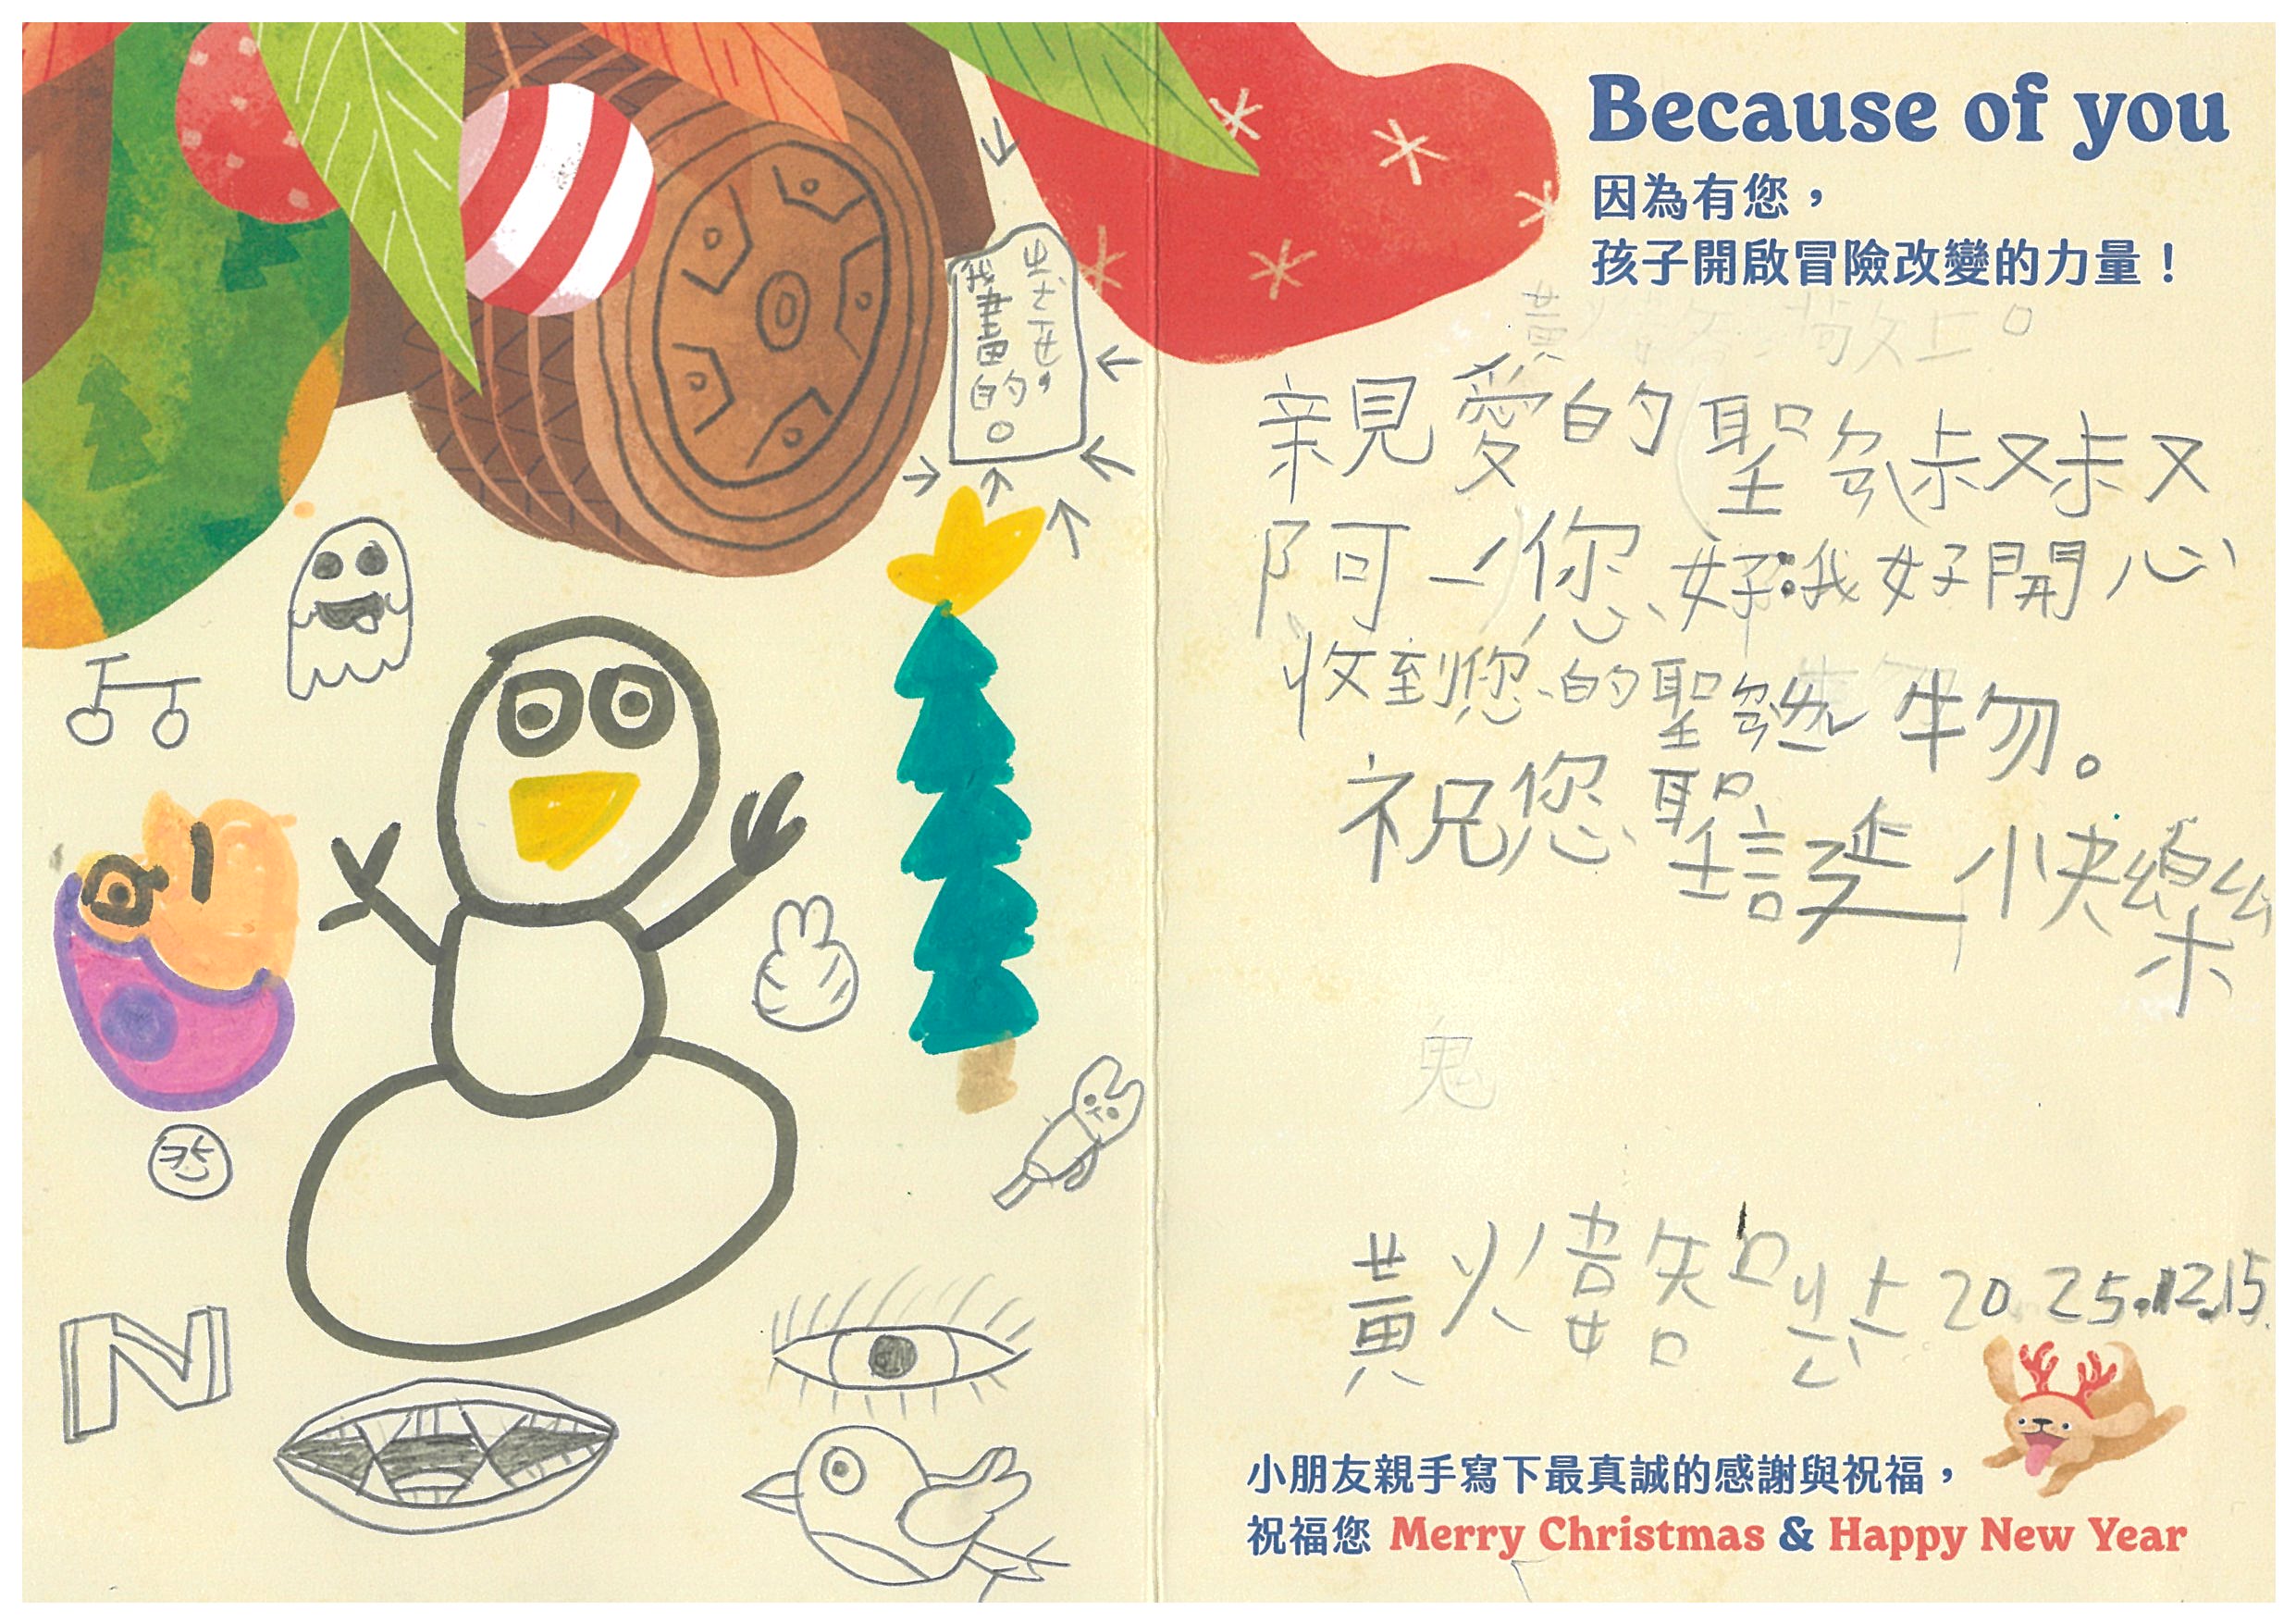 Because of you
因為有您，
孩子開啟冒險改變的力量！
我畫的。
敬上。
親愛的聖叔叔
阿您好:我好開心
收到您的聖物。
祝您聖誕快樂
鬼
黃 2025.12.15
N
小朋友親手寫下最真誠的感謝與祝福，
祝福您 Merry Christmas & Happy New Year